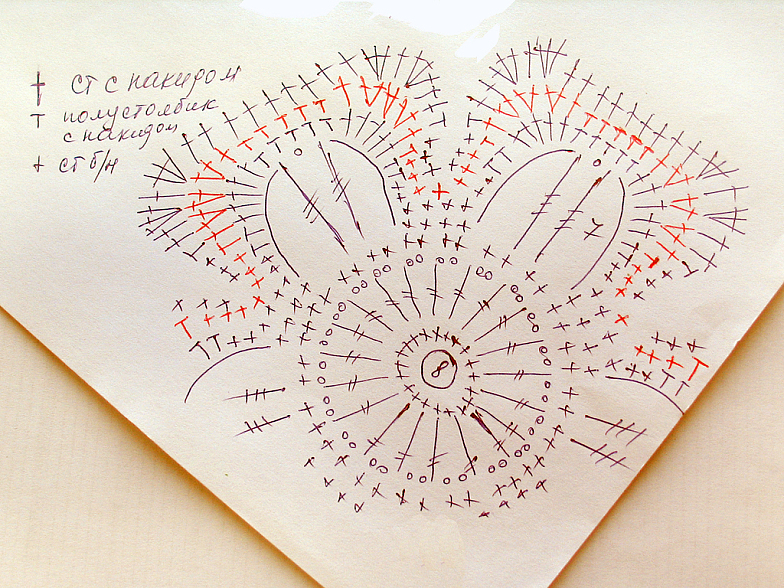 ст с накидом
полустолбик
с накидом
ст б/н
8
7